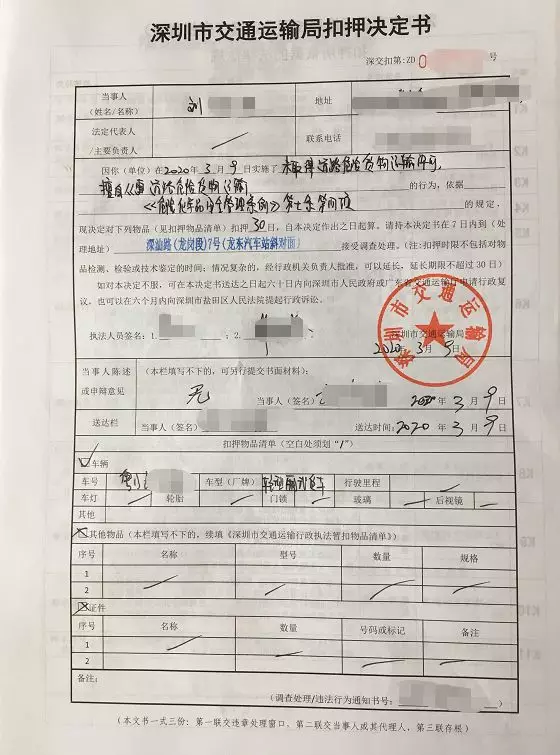 深圳市交通运输局扣押决定书
深交扣第:ZD 0 号
当事人
(姓名/名称)
刘
地址
法定代表人
/主要负责人
联系电话
因你(单位)在2020年3月9日实施了未取得道路危险货物运输许可,
擅自从事道路危险货物运输 的行为,依据
《危险化学品安全管理条例》第七条第四项 的规定,
现决定对下列物品(见扣押物品清单)扣押30日,自本决定作出之日起算。请持本决定书在7日内到(处
理地址) 深汕路(龙岗段)7号(龙东汽车站斜对面) 接受调查处理。(注:扣押时限不包括对物
品检测、检验或技术鉴定的时间;情况复杂的,经行政机关负责人批准,可以延长,延长期限不超过30日)
如对本决定不服,可在本决定书送达之日起六十日内向深圳市人民政府或广东省交通运输厅申请行政复
议,也可以在六个月内向深圳市盐田区人民法院提起行政诉讼。
执法人员签名:1. ;2.
深圳市交通运输局
2020年3月9日
当事人陈述
或申辩意见
(本栏填写不下的,可另行提交书面材料):
无
当事人(签名) 2020年3月9日
送达栏
当事人(签名)
送达时间:2020年3月9日
扣押物品清单(空白处须划“/”)
车辆
车号 粤
车型(厂牌) 轻型厢式货车
行驶里程
车灯 轮胎 门锁 玻璃 后视镜
其他
其他物品(本栏填写不下的,续填《深圳市交通运输行政执法暂扣物品清单》)
序号 名称 型号 数量 规格
1
2
证件
序号 名称 数量 号码或标记 备注
1
2
备注:
(调查处理/违法行为通知书号:
(本文书一式三份:第一联交违章处理窗口、第二联交当事人或其代理人、第三联存根)